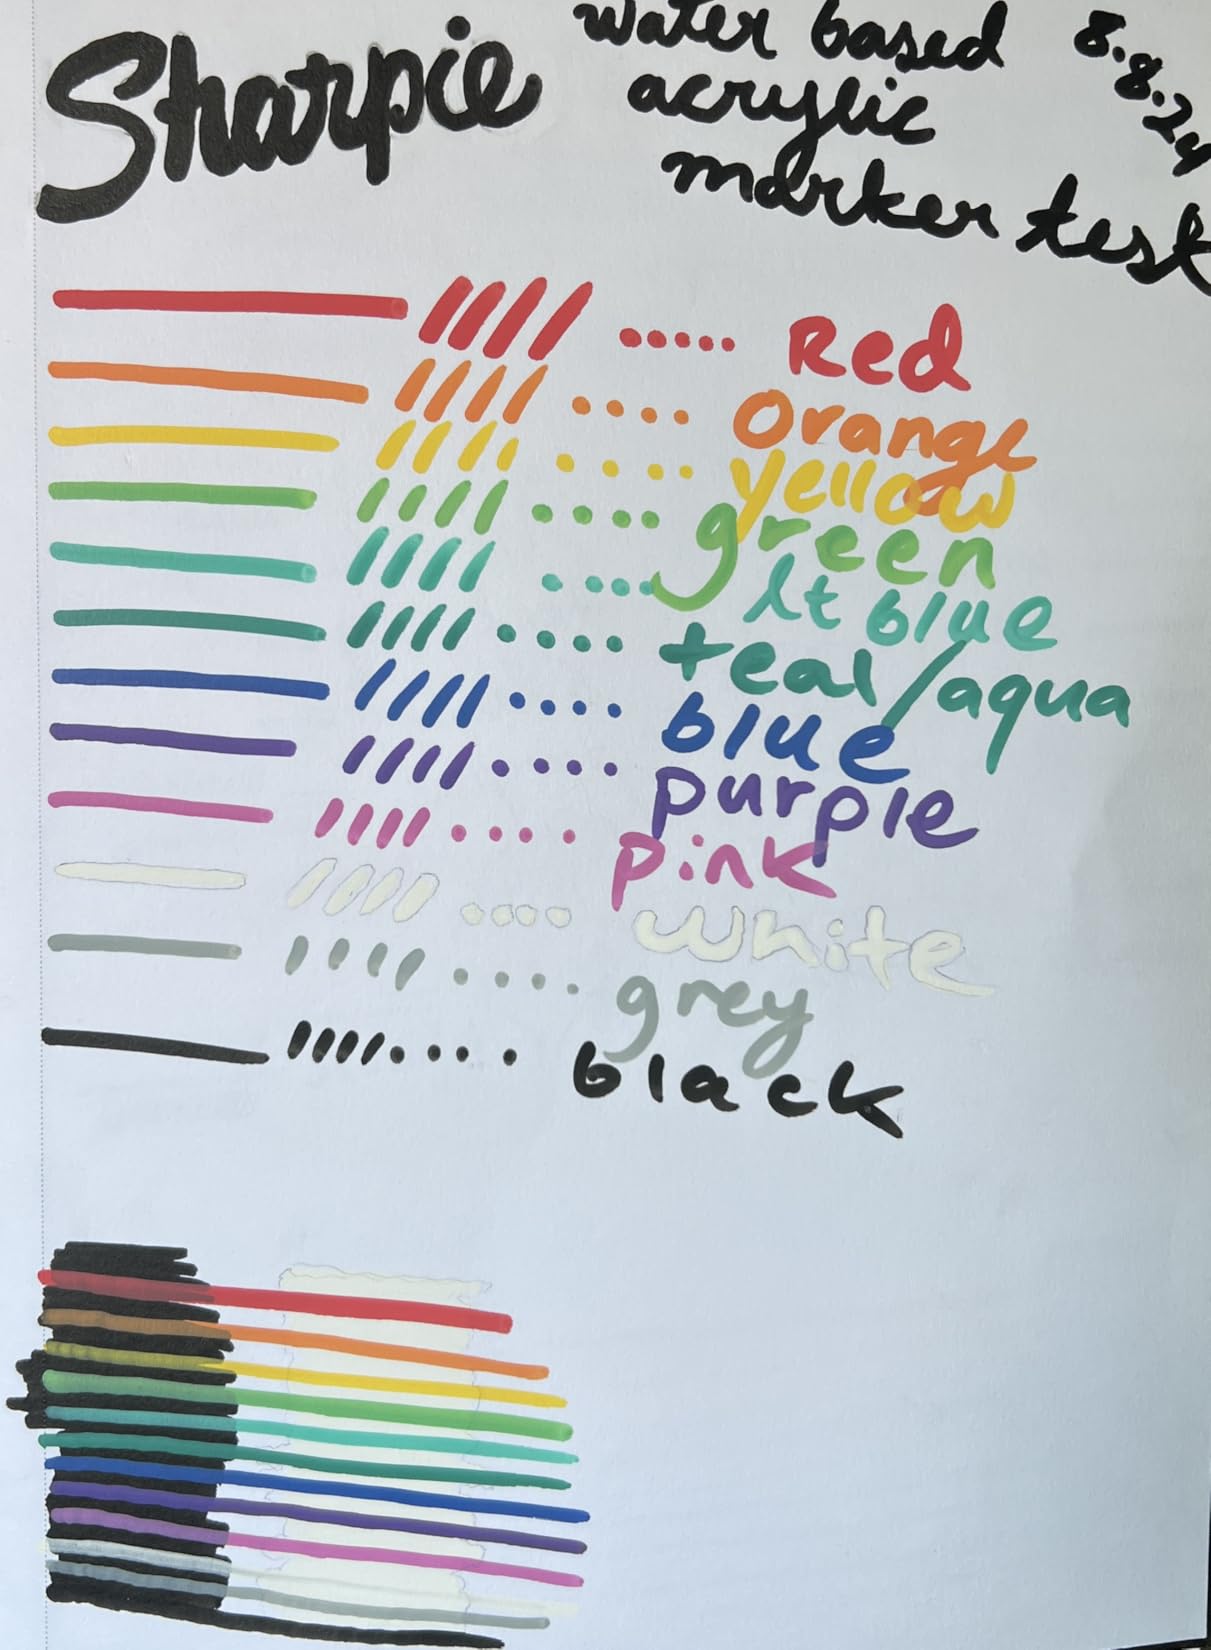 Sharpie
water based
acrylic
marker test
8.8.24
Red
Orange
yellow
green
lt blue
teal/aqua
blue
purple
pink
white
grey
black